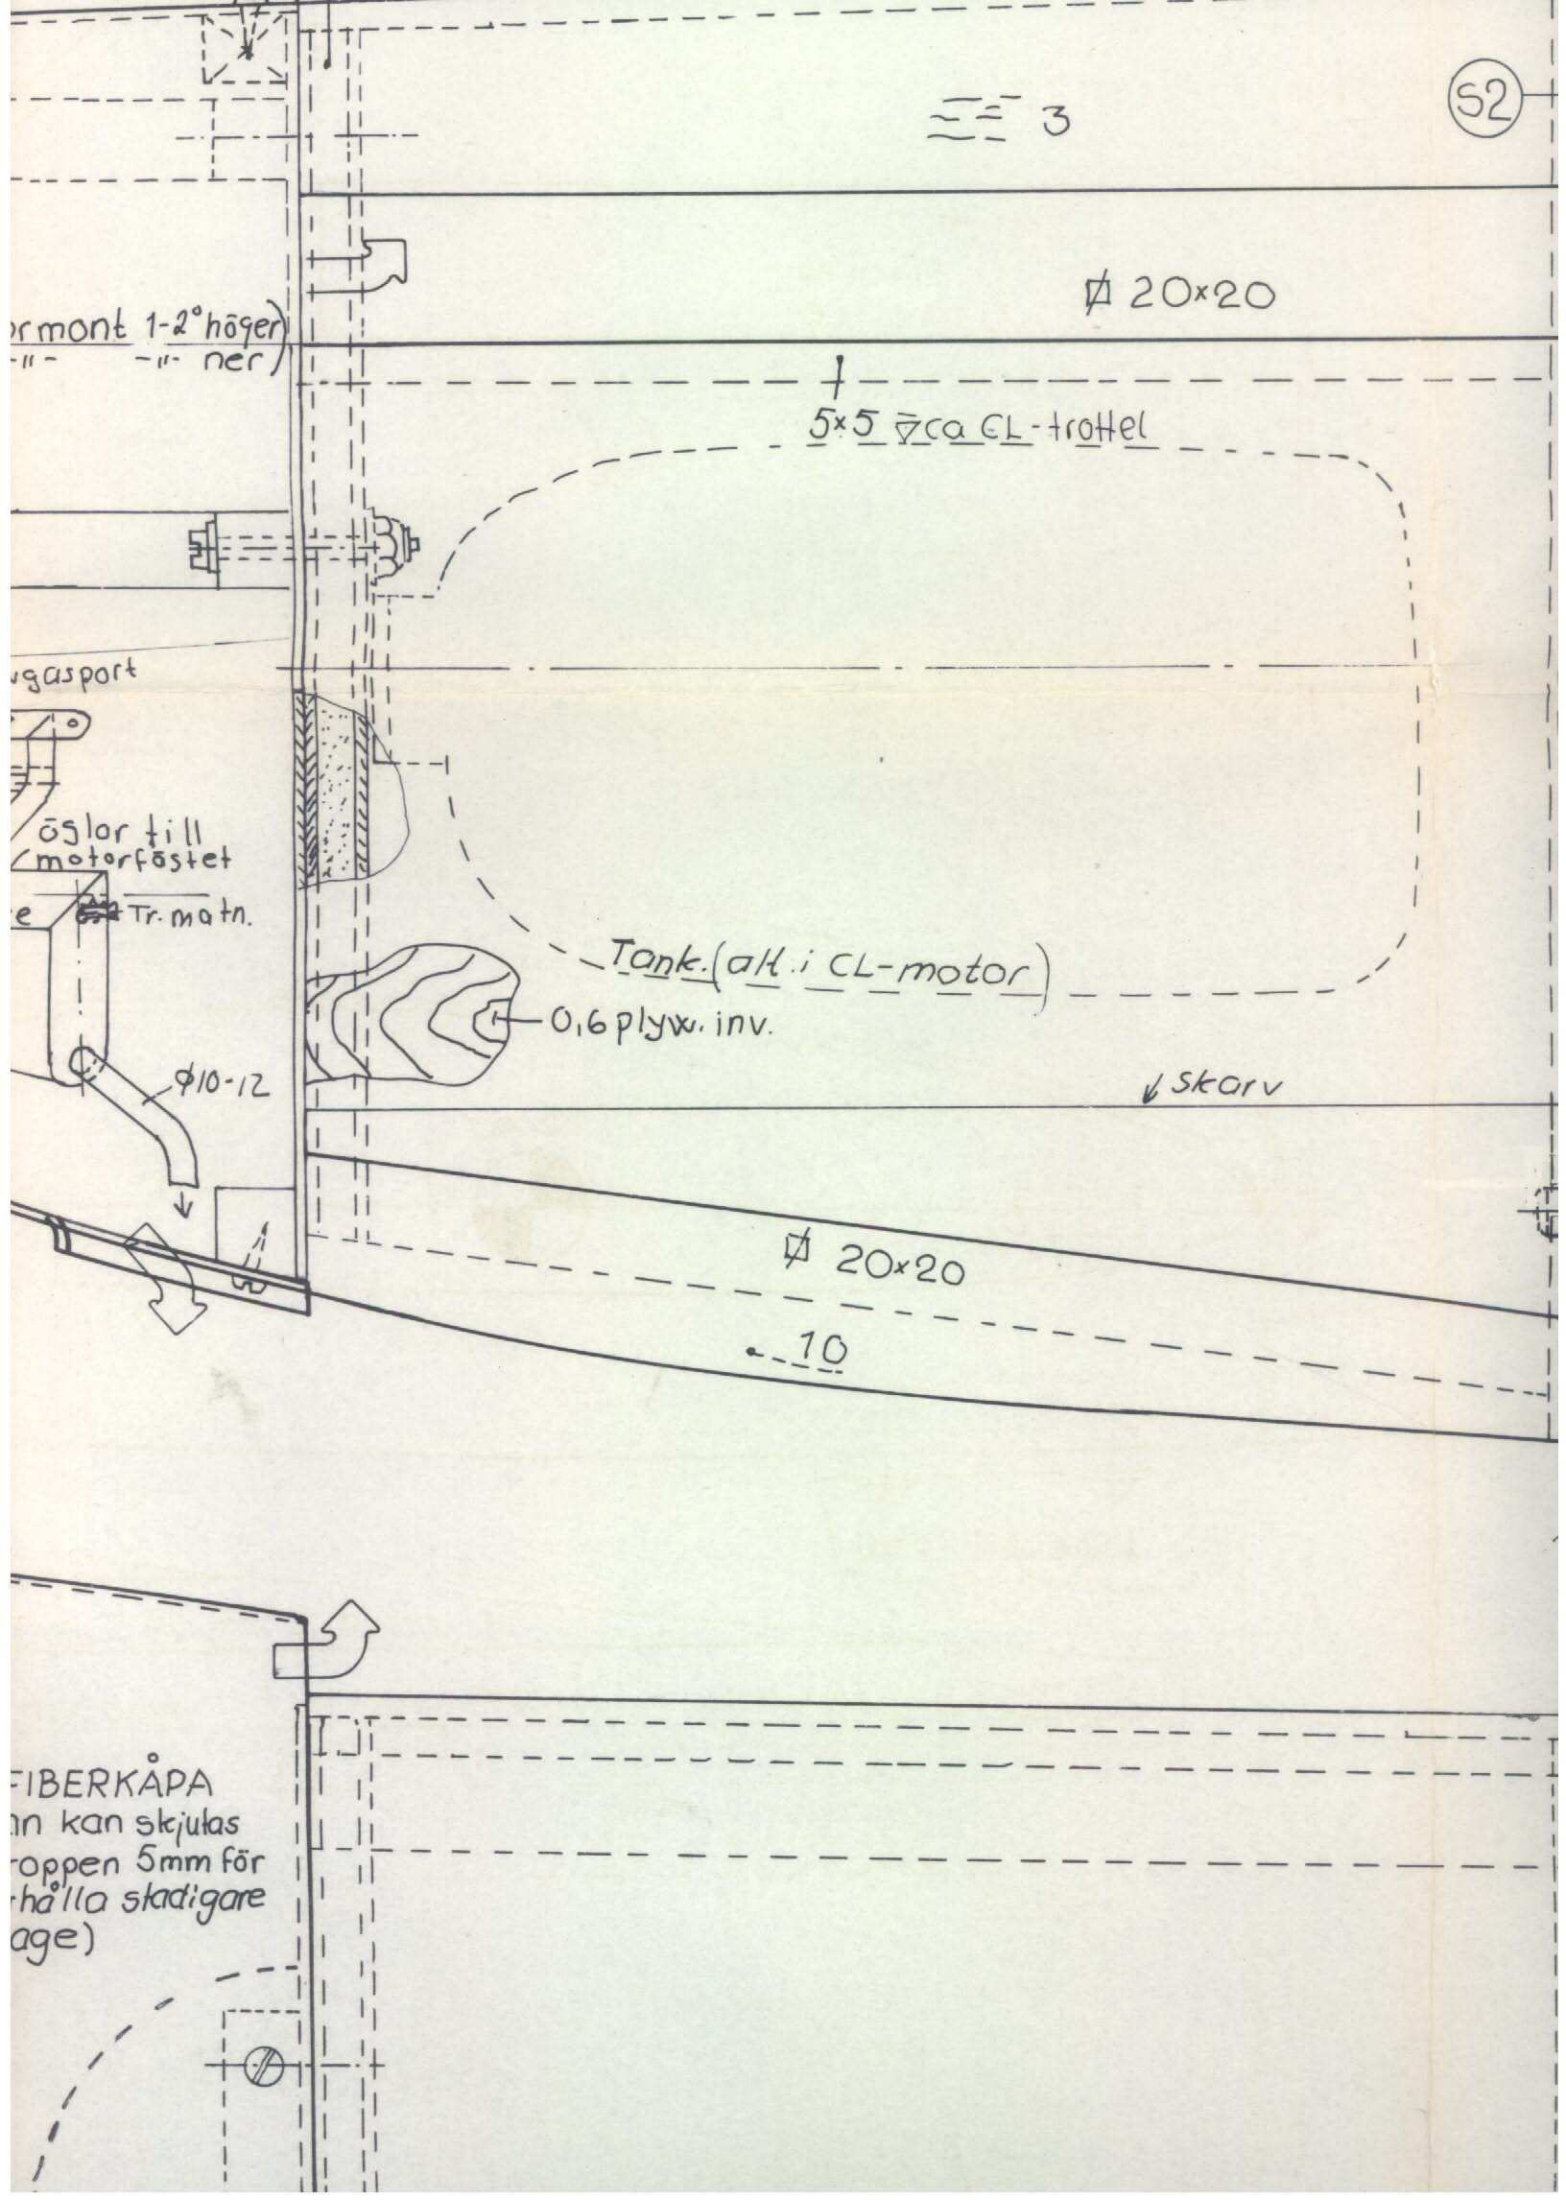 3
S2
20×20
mont 1-2° höger)
-"- -"- ner)
5×5 ca CL-trottel
gasport
öglor till
motorfästet
Tr. matn.
Tank. (alt. i CL-motor)
0,6 plyw. inv.
ϕ10-12
skarv
20×20
10
FIBERKÅPA
kan skjutas
roppen 5mm för
hålla stadigare
age)